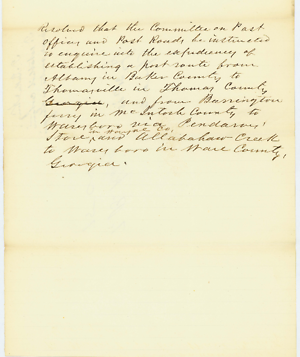 Resolved that the Committee on Post
offices and Post Roads be instructed
to enquire into the expediency of
establishing a post route from
Albany in Baker County to
Thomasville in Thomas County
Georgia, and from Barrington
ferry in McIntosh County to
Waresboro via Pendarvis'
Store, and Allabahaw Creek
to Waresboro in Ware County,
Georgia.